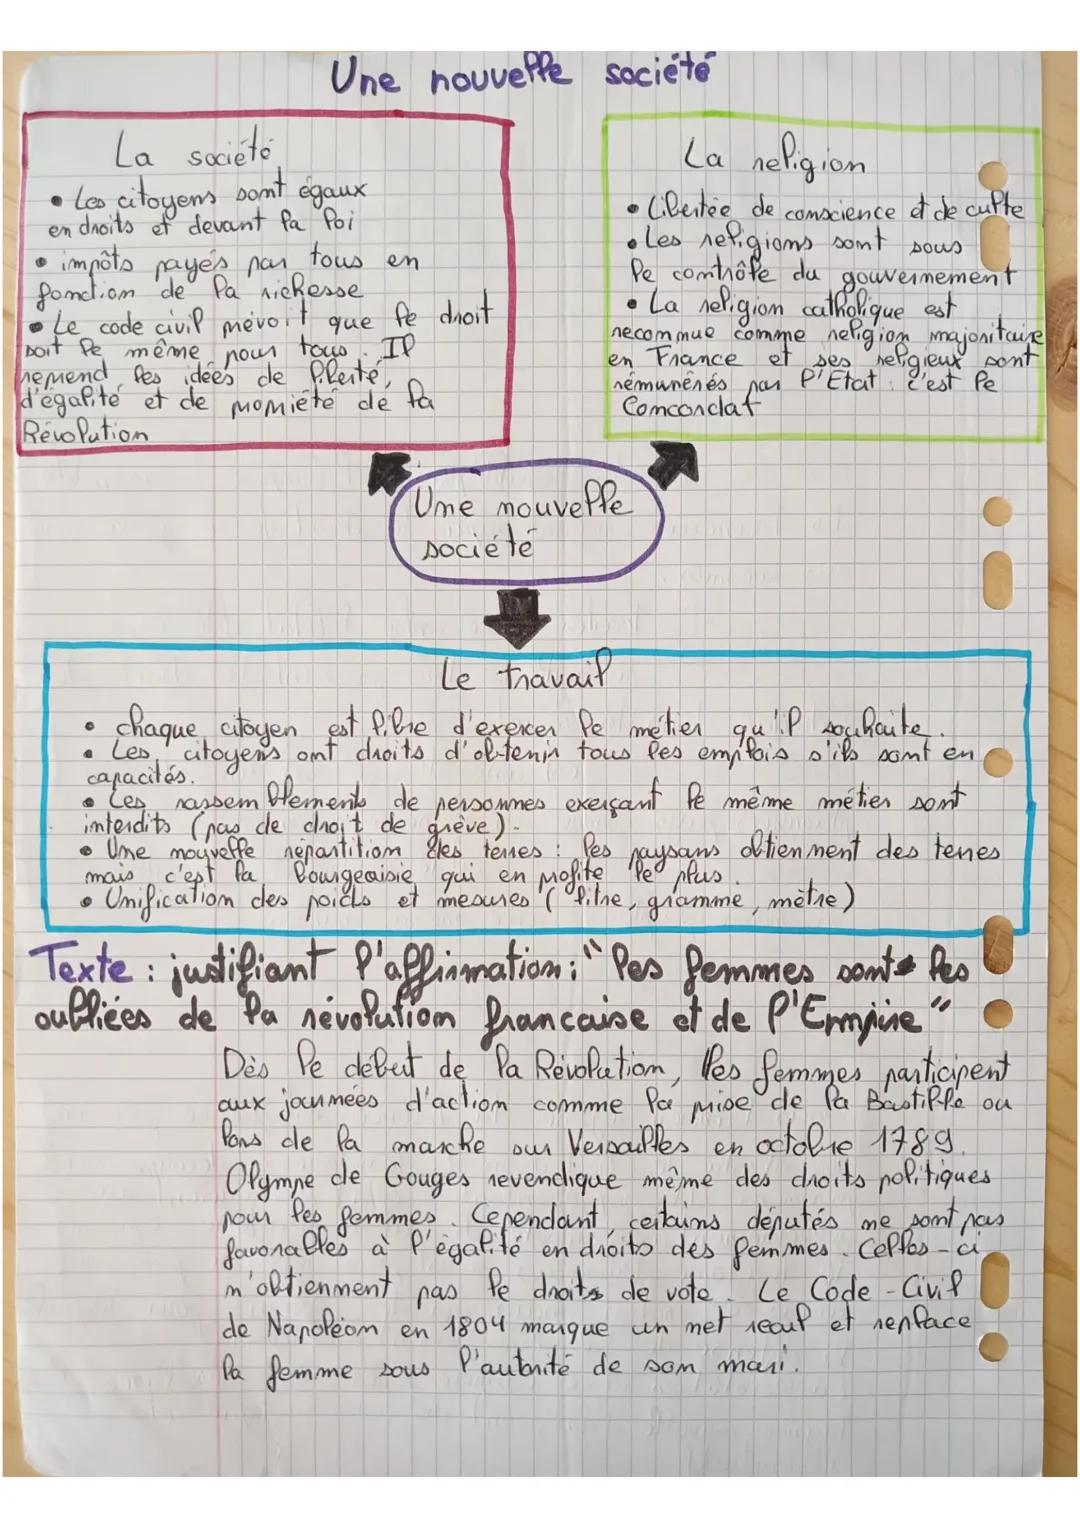 Une nouvelle société
La société
• Les citoyens sont égaux
en droits et devant la loi
• impôts payés par tous en
fonction de la richesse
• Le code civil prévoit que le droit
soit le même pour tous. Il
reprend les idées de liberté,
d'égalité et de propriété de la
Révolution
La religion
• Libertée de conscience et de culte
• Les religions sont sous
le contrôle du gouvernement
• La religion catholique est
reconnue comme religion majoritaire
en France et ses religieux sont
rémunérés par l'Etat : c'est le
Concordat
Une nouvelle
société
Le travail
• chaque citoyen est libre d'exercer le métier qu'il souhaite.
• Les citoyens ont droits d'obtenir tous les emplois s'ils sont en
capacités.
• Les rassemblements de personnes exerçant le même métier sont
interdits (pas de droit de grève).
• Une nouvelle répartition des terres : les paysans obtiennent des terres
mais c'est la bourgeoisie qui en profite le plus.
• Unification des poids et mesures (litre, gramme, mètre)
Texte : justifiant l'affirmation : "les femmes sont les
oubliées de la révolution francaise et de l'Empire"
Dès le début de la Révolution, les femmes participent
aux journées d'action comme la prise de la Bastille ou
lors de la marche sur Versailles en octobre 1789.
Olympe de Gouges revendique même des droits politiques
pour les femmes. Cependant, certains députés ne sont pas
favorables à l'égalité en droits des femmes. Celles-ci
n'obtiennent pas le droits de vote. Le Code-Civil
de Napoléon en 1804 marque un net recul et replace
la femme sous l'autorité de son mari.